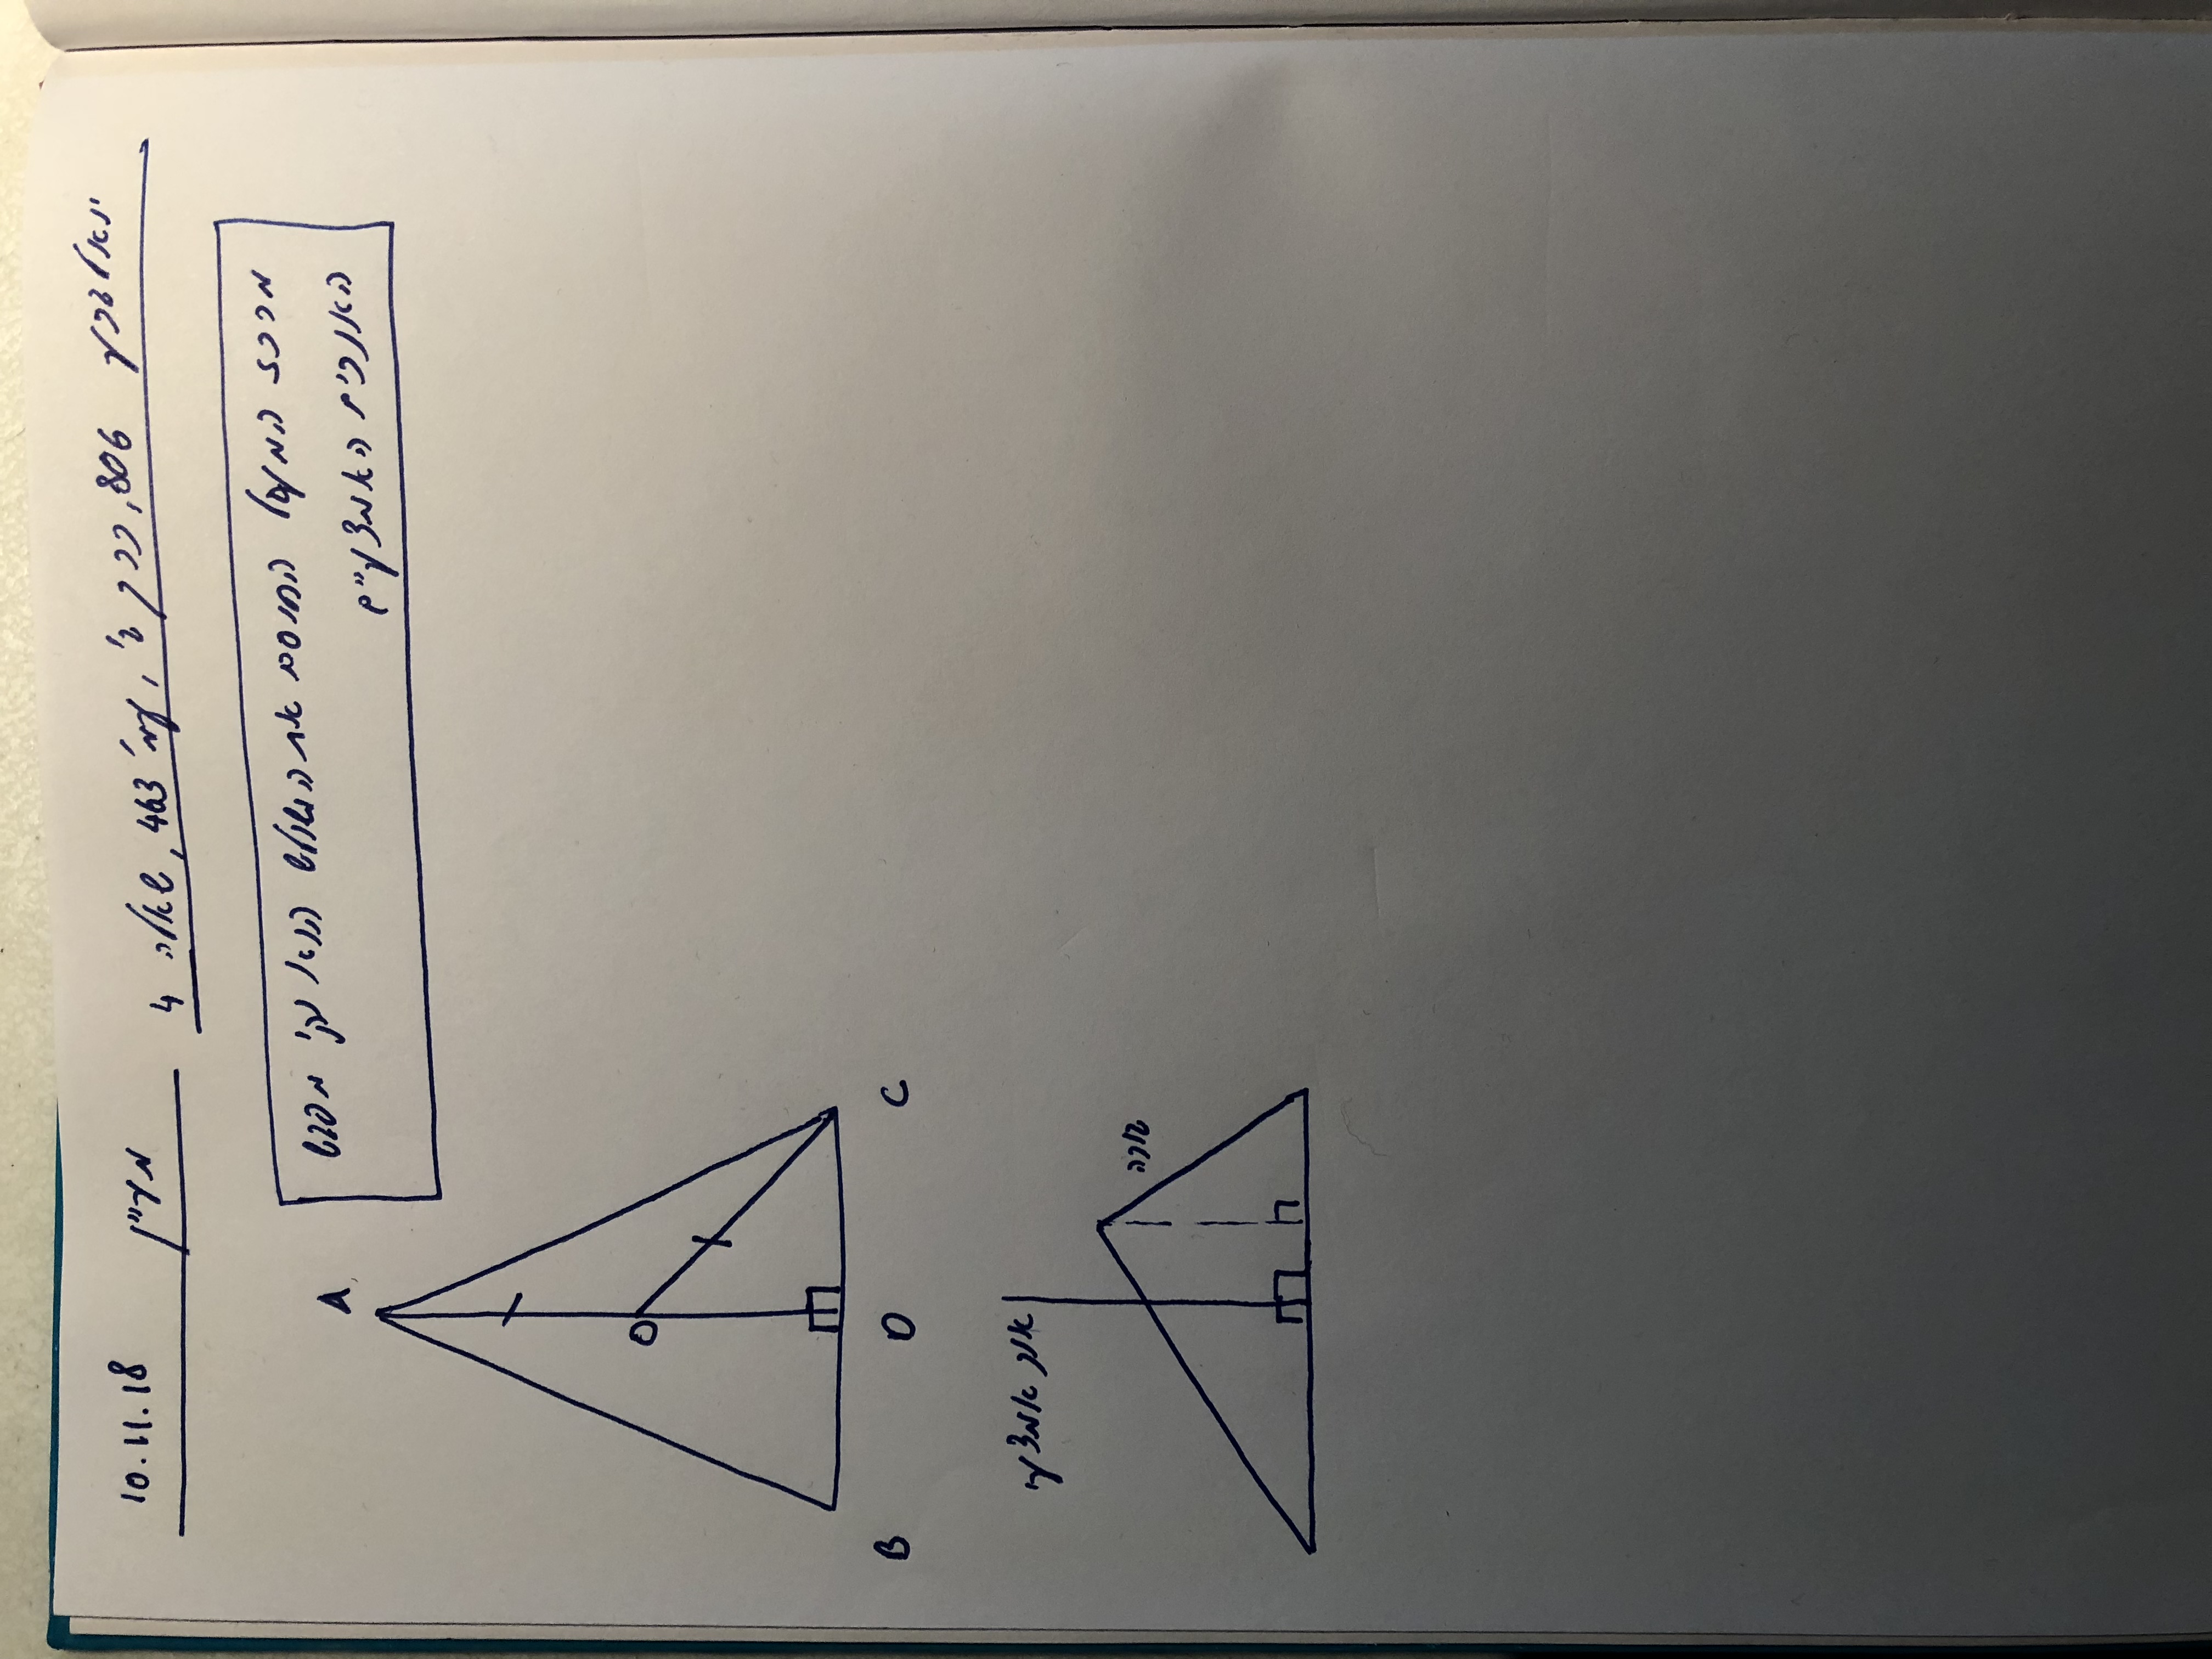 יואל גבע 806, כרך ב', עמ' 463, שאלה 4
מעיין 10.11.18
מרכז המעגל החוסם את המשולש הוא נק' מפגש
האנכים האמצעיים
A
O
B D C
אנך אמצעי
גובה